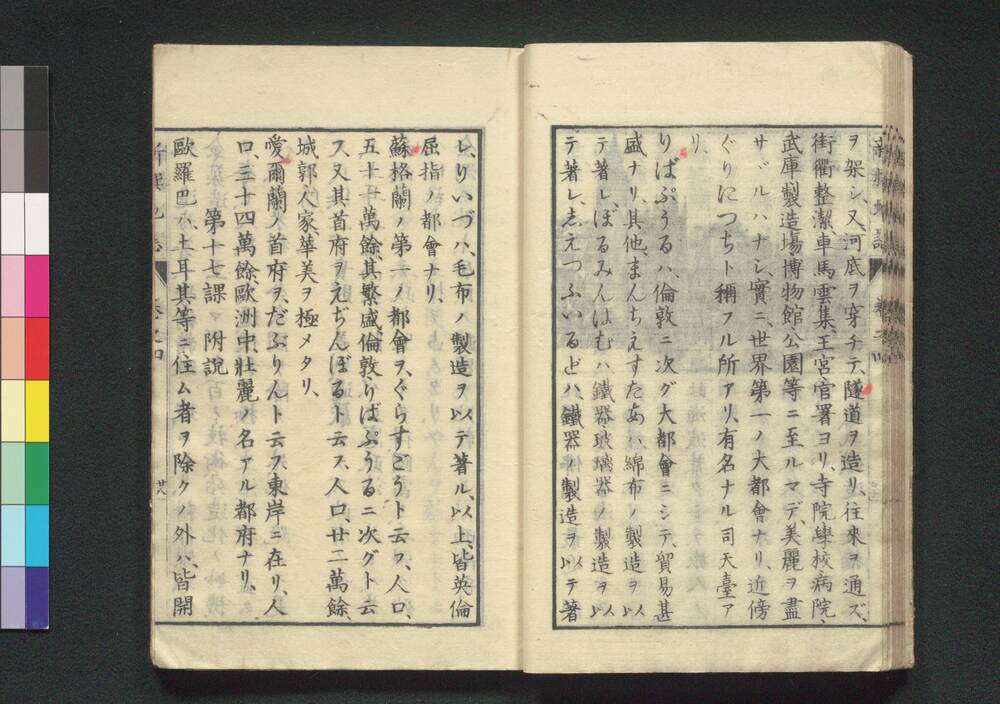 ヲ架シ、又、河底ヲ穿チテ、隧道ヲ造リ、往來ヲ通ズ、
街衢整潔、車馬雲集、王宮官署ヨリ、寺院、學校、病院、
武庫、製造場、博物館、公園等ニ至ルマデ、美麗ヲ盡
サヾルハナシ、實ニ、世界第一ノ大都會ナリ、近傍
ぐりにつちト稱フル所アリ、有名ナル司天臺ア
リ、
りばぷうるハ、倫敦ニ次グ大都會ニシテ、貿易甚
盛ナリ、其他、まんちえすたあハ、綿布ノ製造ヲ以
テ著レ、ばるみんはむハ、鐵器、玻璃器ノ製造ヲ以
テ著レ、しえつふいるどハ、鐵器ノ製造ヲ以テ著
レ、りいづハ、毛布ノ製造ヲ以テ著ル、以上、皆英倫
屈指ノ都會ナリ、
蘇格蘭ノ第一ノ都會ヲ、ぐらすごうト云フ、人口、
五十一萬餘、其繁盛、倫敦、りばぷうるニ次グト云
フ、又其首府ヲえぢんぼるト云フ、人口、廿二萬餘、
城郭、人家、華美ヲ極メタリ、
愛爾蘭ノ首府ヲ、だぶりんト云フ、東岸ニ在リ、人
口、三十四萬餘、歐洲中、壯麗ノ名アル都府ナリ、
第十七課 附說
歐羅巴ハ、土耳其等ニ住ム者ヲ除クノ外ハ、皆開
卷之四